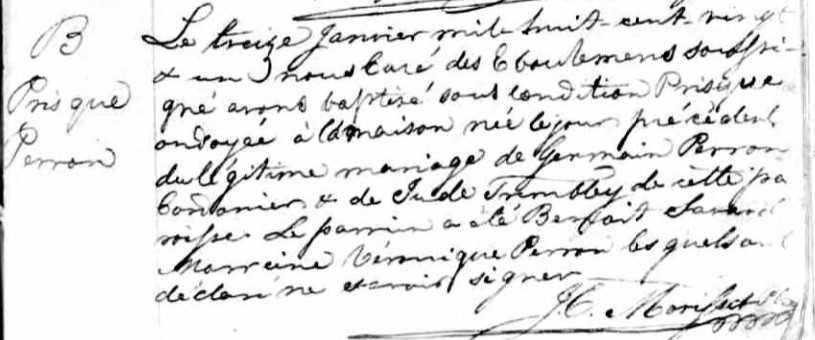 B
Prisque
Perron
Le treize Janvier mil huit-cent-vingt
& un nous Curé des Eboulemens soussi-
gné avons baptisé sous condition Prisque
ondoyeé à la maison née le jour précédent
du légitime mariage de Germain Perron
Cordonier & de Jude Trembley de cette pa
roisse. Le parrain a été Benoit Savard
Marreine Véronique Perron lesquels ont
déclaré ne savoir signer
J. C. Morisset Ptre